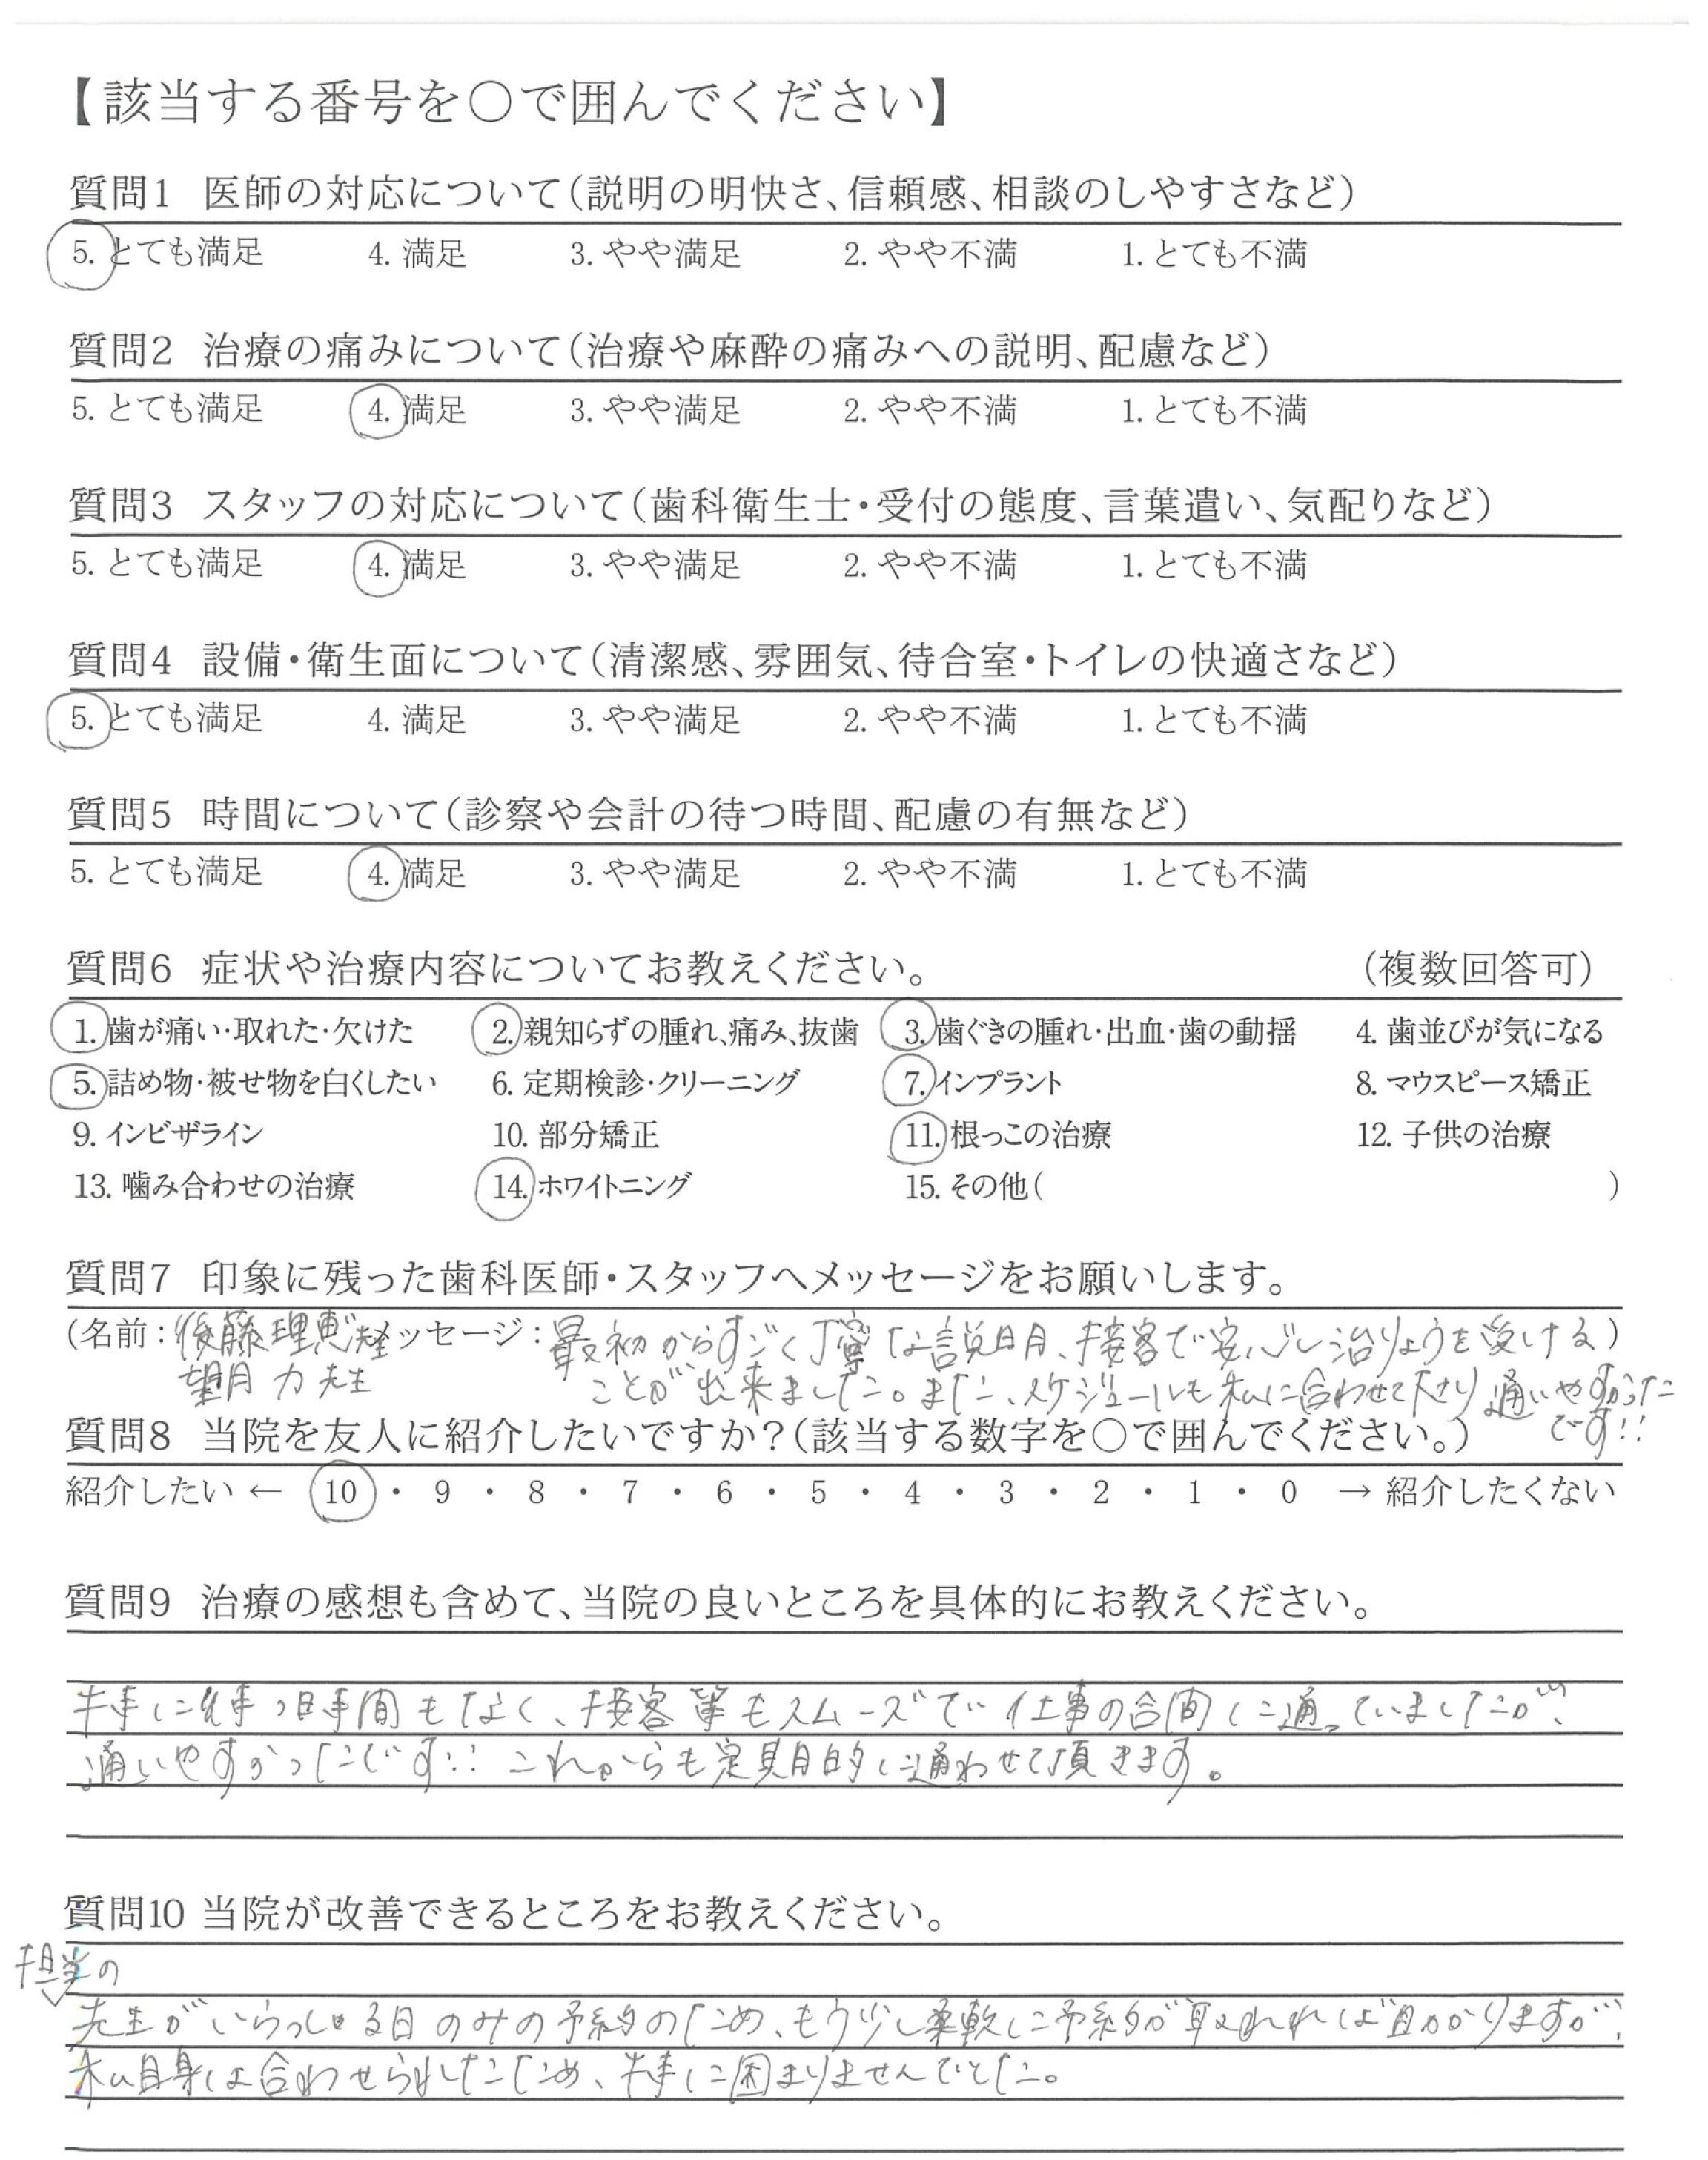 【該当する番号を○で囲んでください】
質問1 医師の対応について(説明の明快さ、信頼感、相談のしやすさなど)
5. とても満足 4. 満足 3. やや満足 2. やや不満 1. とても不満
質問2 治療の痛みについて(治療や麻酔の痛みへの説明、配慮など)
5. とても満足 4. 満足 3. やや満足 2. やや不満 1. とても不満
質問3 スタッフの対応について(歯科衛生士・受付の態度、言葉遣い、気配りなど)
5. とても満足 4. 満足 3. やや満足 2. やや不満 1. とても不満
質問4 設備・衛生面について(清潔感、雰囲気、待合室・トイレの快適さなど)
5. とても満足 4. 満足 3. やや満足 2. やや不満 1. とても不満
質問5 時間について(診察や会計の待つ時間、配慮の有無など)
5. とても満足 4. 満足 3. やや満足 2. やや不満 1. とても不満
質問6 症状や治療内容についてお教えください。 (複数回答可)
1. 歯が痛い・取れた・欠けた 2. 親知らずの腫れ、痛み、抜歯 3. 歯ぐきの腫れ・出血・歯の動揺 4. 歯並びが気になる
5. 詰め物・被せ物を白くしたい 6. 定期検診・クリーニング 7. インプラント 8. マウスピース矯正
9. インビザライン 10. 部分矯正 11. 根っこの治療 12. 子供の治療
13. 噛み合わせの治療 14. ホワイトニング 15. その他( )
質問7 印象に残った歯科医師・スタッフへメッセージをお願いします。
(名前: 後藤理恵先生 メッセージ: 最初からすごく丁寧な説明、接客で安心し治りょうを受ける)
望月 力 先生 ことが出来ました。また、スケジュールも私に合わせて下さり通いやすかった
です!!
質問8 当院を友人に紹介したいですか?(該当する数字を○で囲んでください。)
紹介したい ← 10 ・ 9 ・ 8 ・ 7 ・ 6 ・ 5 ・ 4 ・ 3 ・ 2 ・ 1 ・ 0 → 紹介したくない
質問9 治療の感想も含めて、当院の良いところを具体的にお教えください。
特に待つ時間もなく、接客等もスムーズで仕事の合間に通っていましたが、
通いやすかったです!! これからも定期的に通わせて頂きます。
質問10 当院が改善できるところをお教えください。
担当の
先生がいらっしゃる日のみの予約のため、もう少し柔軟に予約が取れれば助かりますが、
私自身は合わせられたため、特に困まりませんでした。